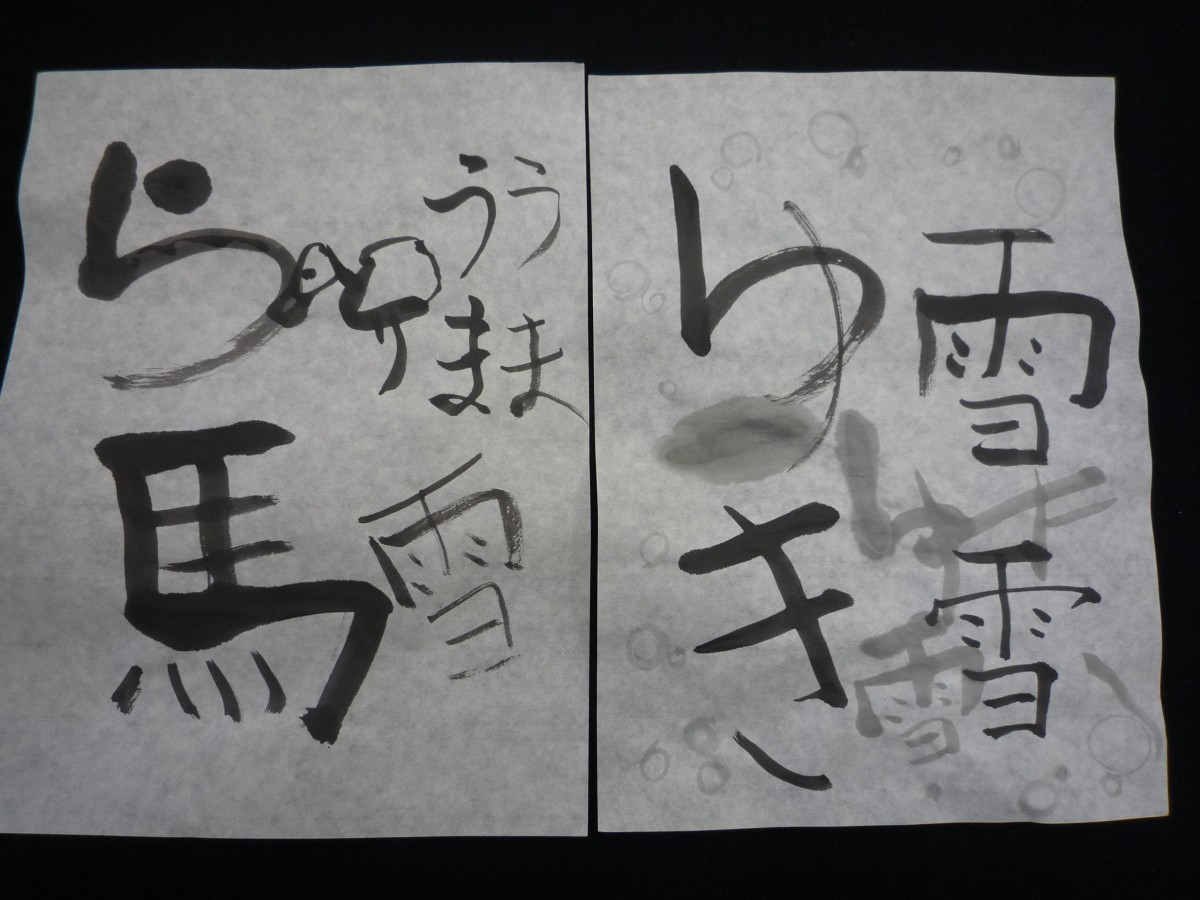 雪
雪
ゆき
雪
ゆき
うま
うま
雪
ら
馬